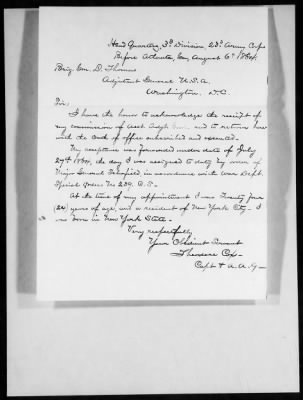 Head Quarters, 3d Division, 23d Army Corps
Before Atlanta, Geo, August 6th 1864.
Brig. Gen. L. Thomas
Adjutant General U.S.A.
Washington. D.C.
Sir:
I have the honor to acknowledge the receipt of
my commission of Asst Adjt Gen. and to return here
with the oath of office subscribed and executed.
My acceptance was forwarded under date of July
27th 1864, the day I was assigned to duty by order of
Major General Schofield, in accordance with War Dept.
Special Orders No 239. C.S.
At the time of my appointment I was Twenty four
(24) years of age, and a resident of New York City. I
was born in New York State.
Very respectfully
Your Obedient Servant
Theodore Cox
Capt & A.A.G.